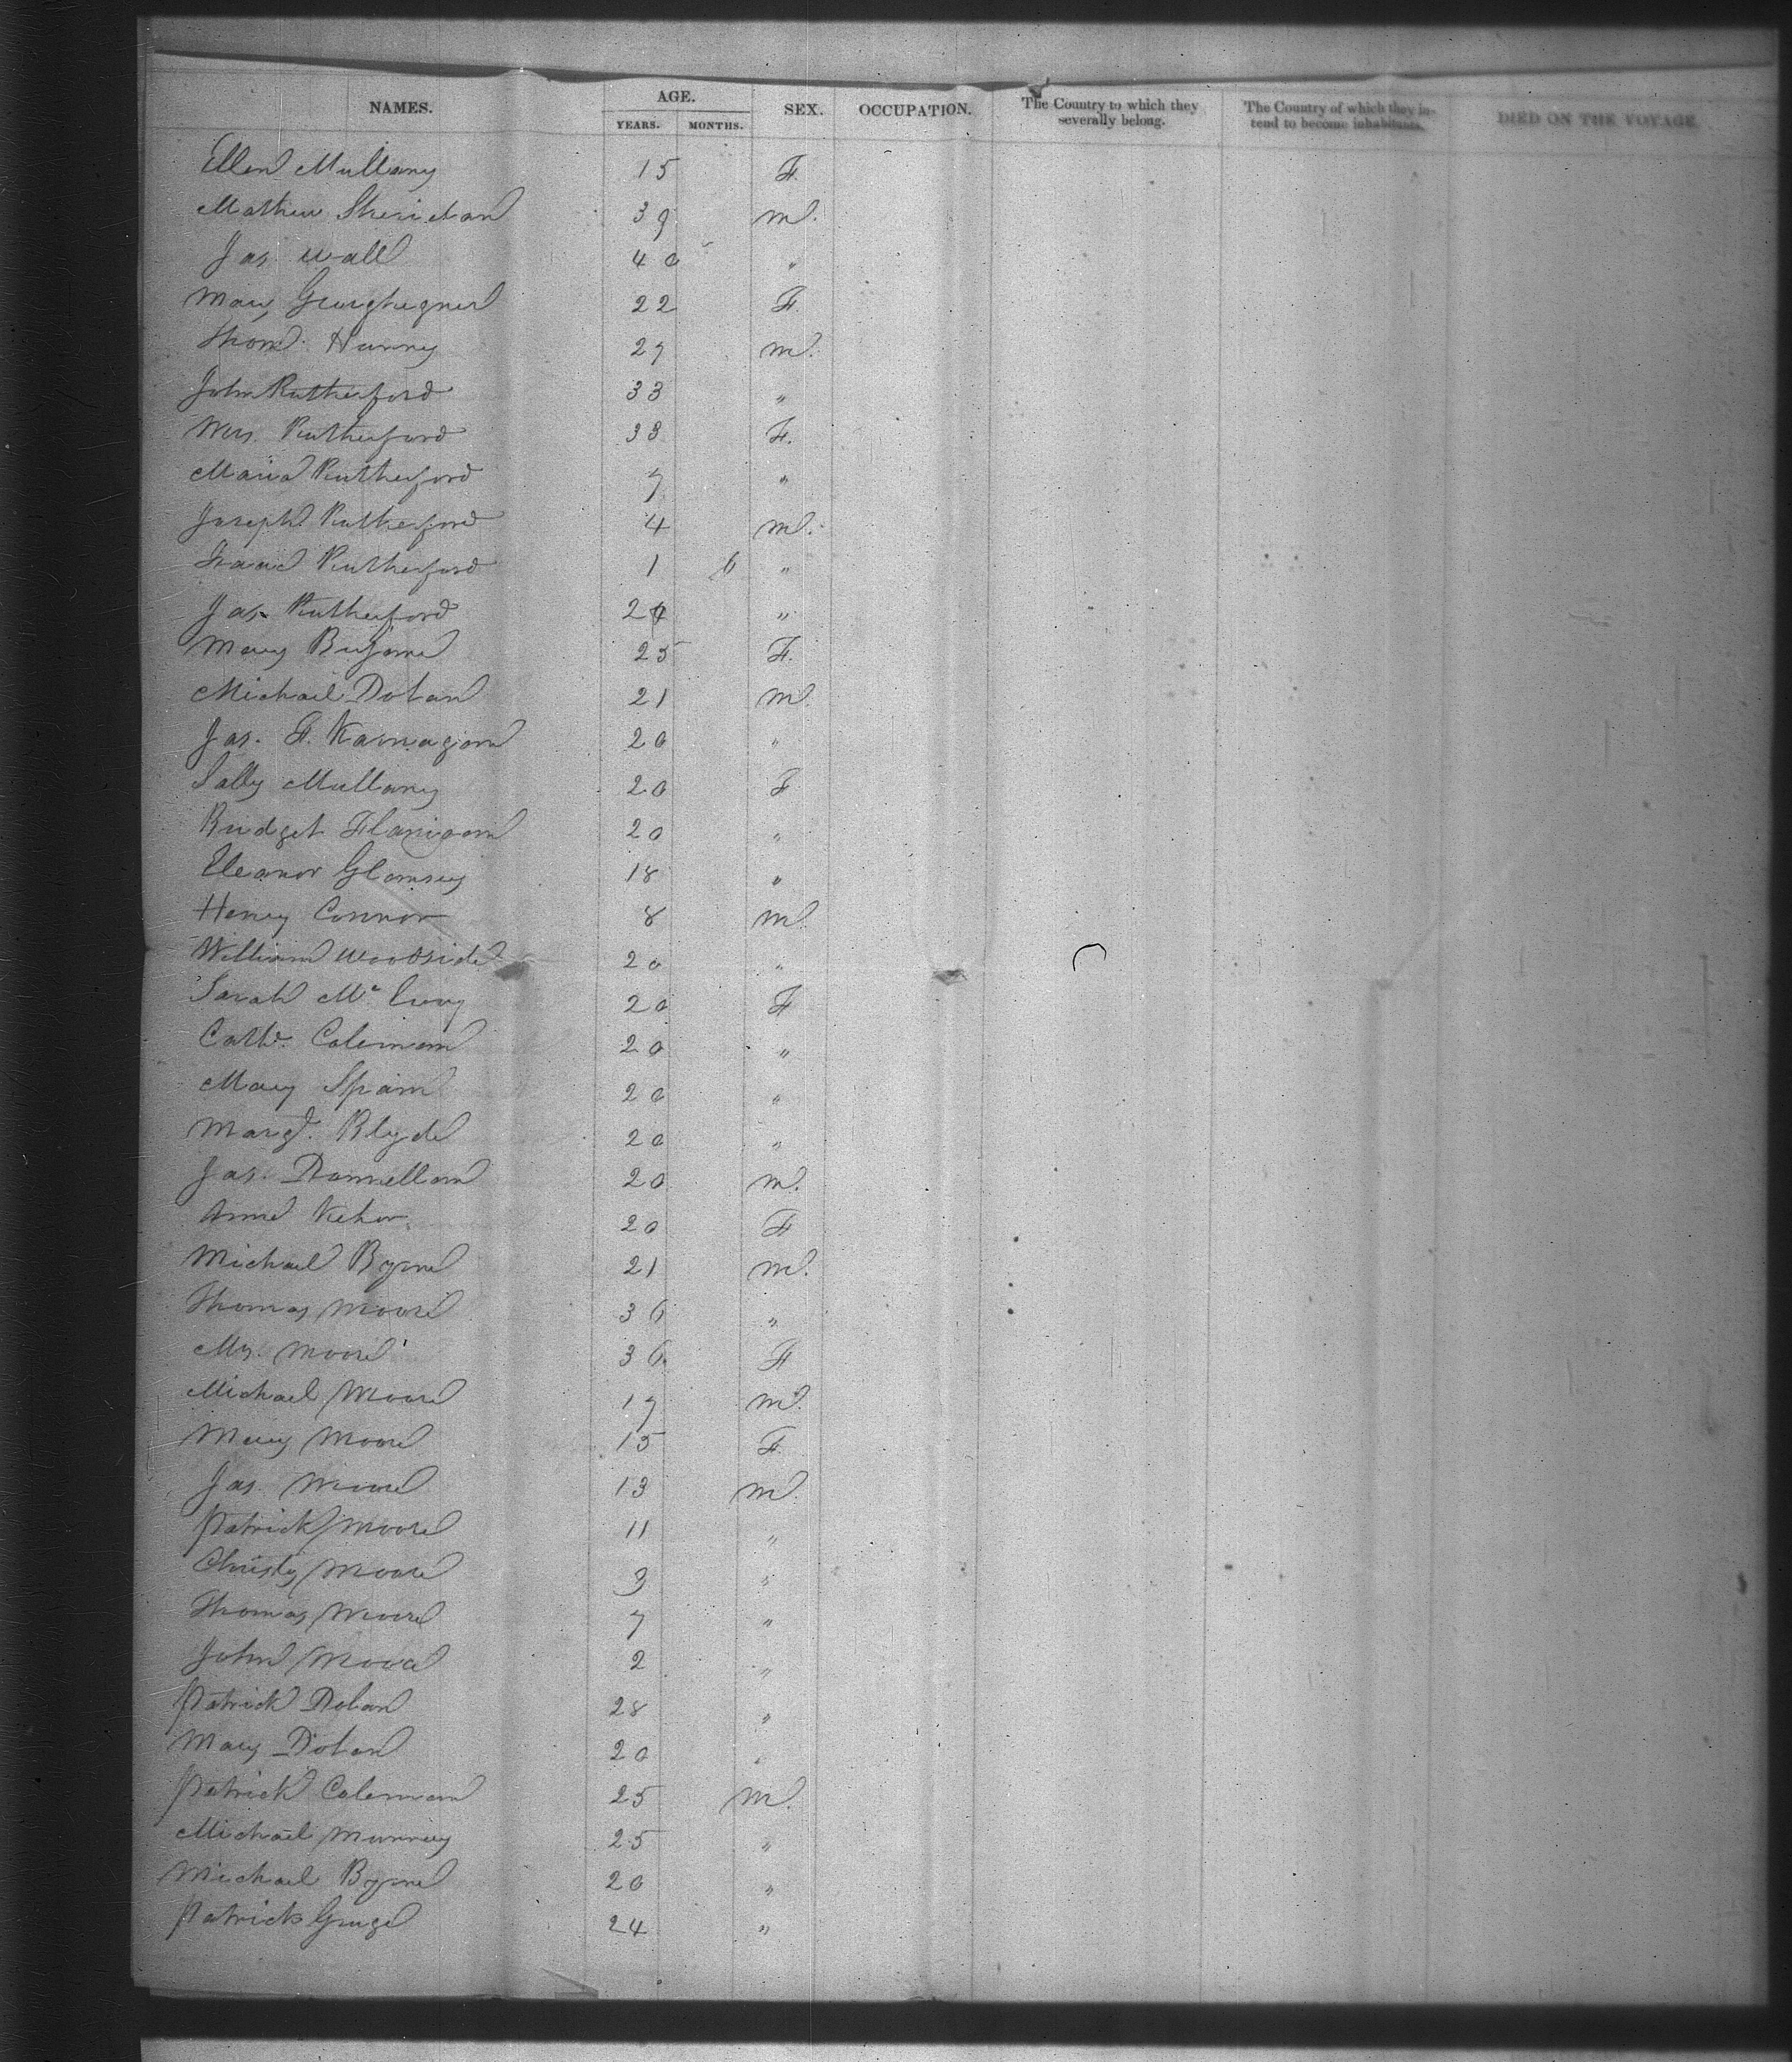 NAMES. AGE. SEX. OCCUPATION. The Country to which they severally belong. The Country of which they intend to become inhabitants. DIED ON THE VOYAGE.
YEARS. MONTHS.
Ellen Mullany 15 F.
Mathew Sheridan 39 M.
Jas. Wall 40 "
Mary 22 F.
Thom. 27 M.
John Rutherford 33 "
Mrs. Rutherford 33 F.
Maria Rutherford 7 "
Joseph Rutherford 4 M.
Isaac Rutherford 1 6 "
Jas. Rutherford 24 "
Mary 25 F.
Michael Dolan 21 M.
Jas. F. 20 "
Sally Mullany 20 F
Bridget Flanigan 20 "
Eleanor 18 "
Henry Connor 8 M.
William Woodside 20 "
Sarah Mc 20 F
Cath. Coleman 20 "
Mary Spain 20 "
Margt. Blyde 20 "
Jas. Donnellan 20 M.
Anne Kehor 20 F
Michael Byrne 21 M.
Thomas Moore 36 "
Mrs. Moore 36 F
Michael Moore 17 M.
Mary Moore 15 F.
Jas. Moore 13 M.
Patrick Moore 11 "
Christy Moore 9 "
Thomas Moore 7 "
John Moore 2 "
Patrick Dolan 28 "
Mary Dolan 20 "
Patrick Coleman 25 M.
Michael Murray 25 "
Michael Byrne 20 "
Patrick 24 "